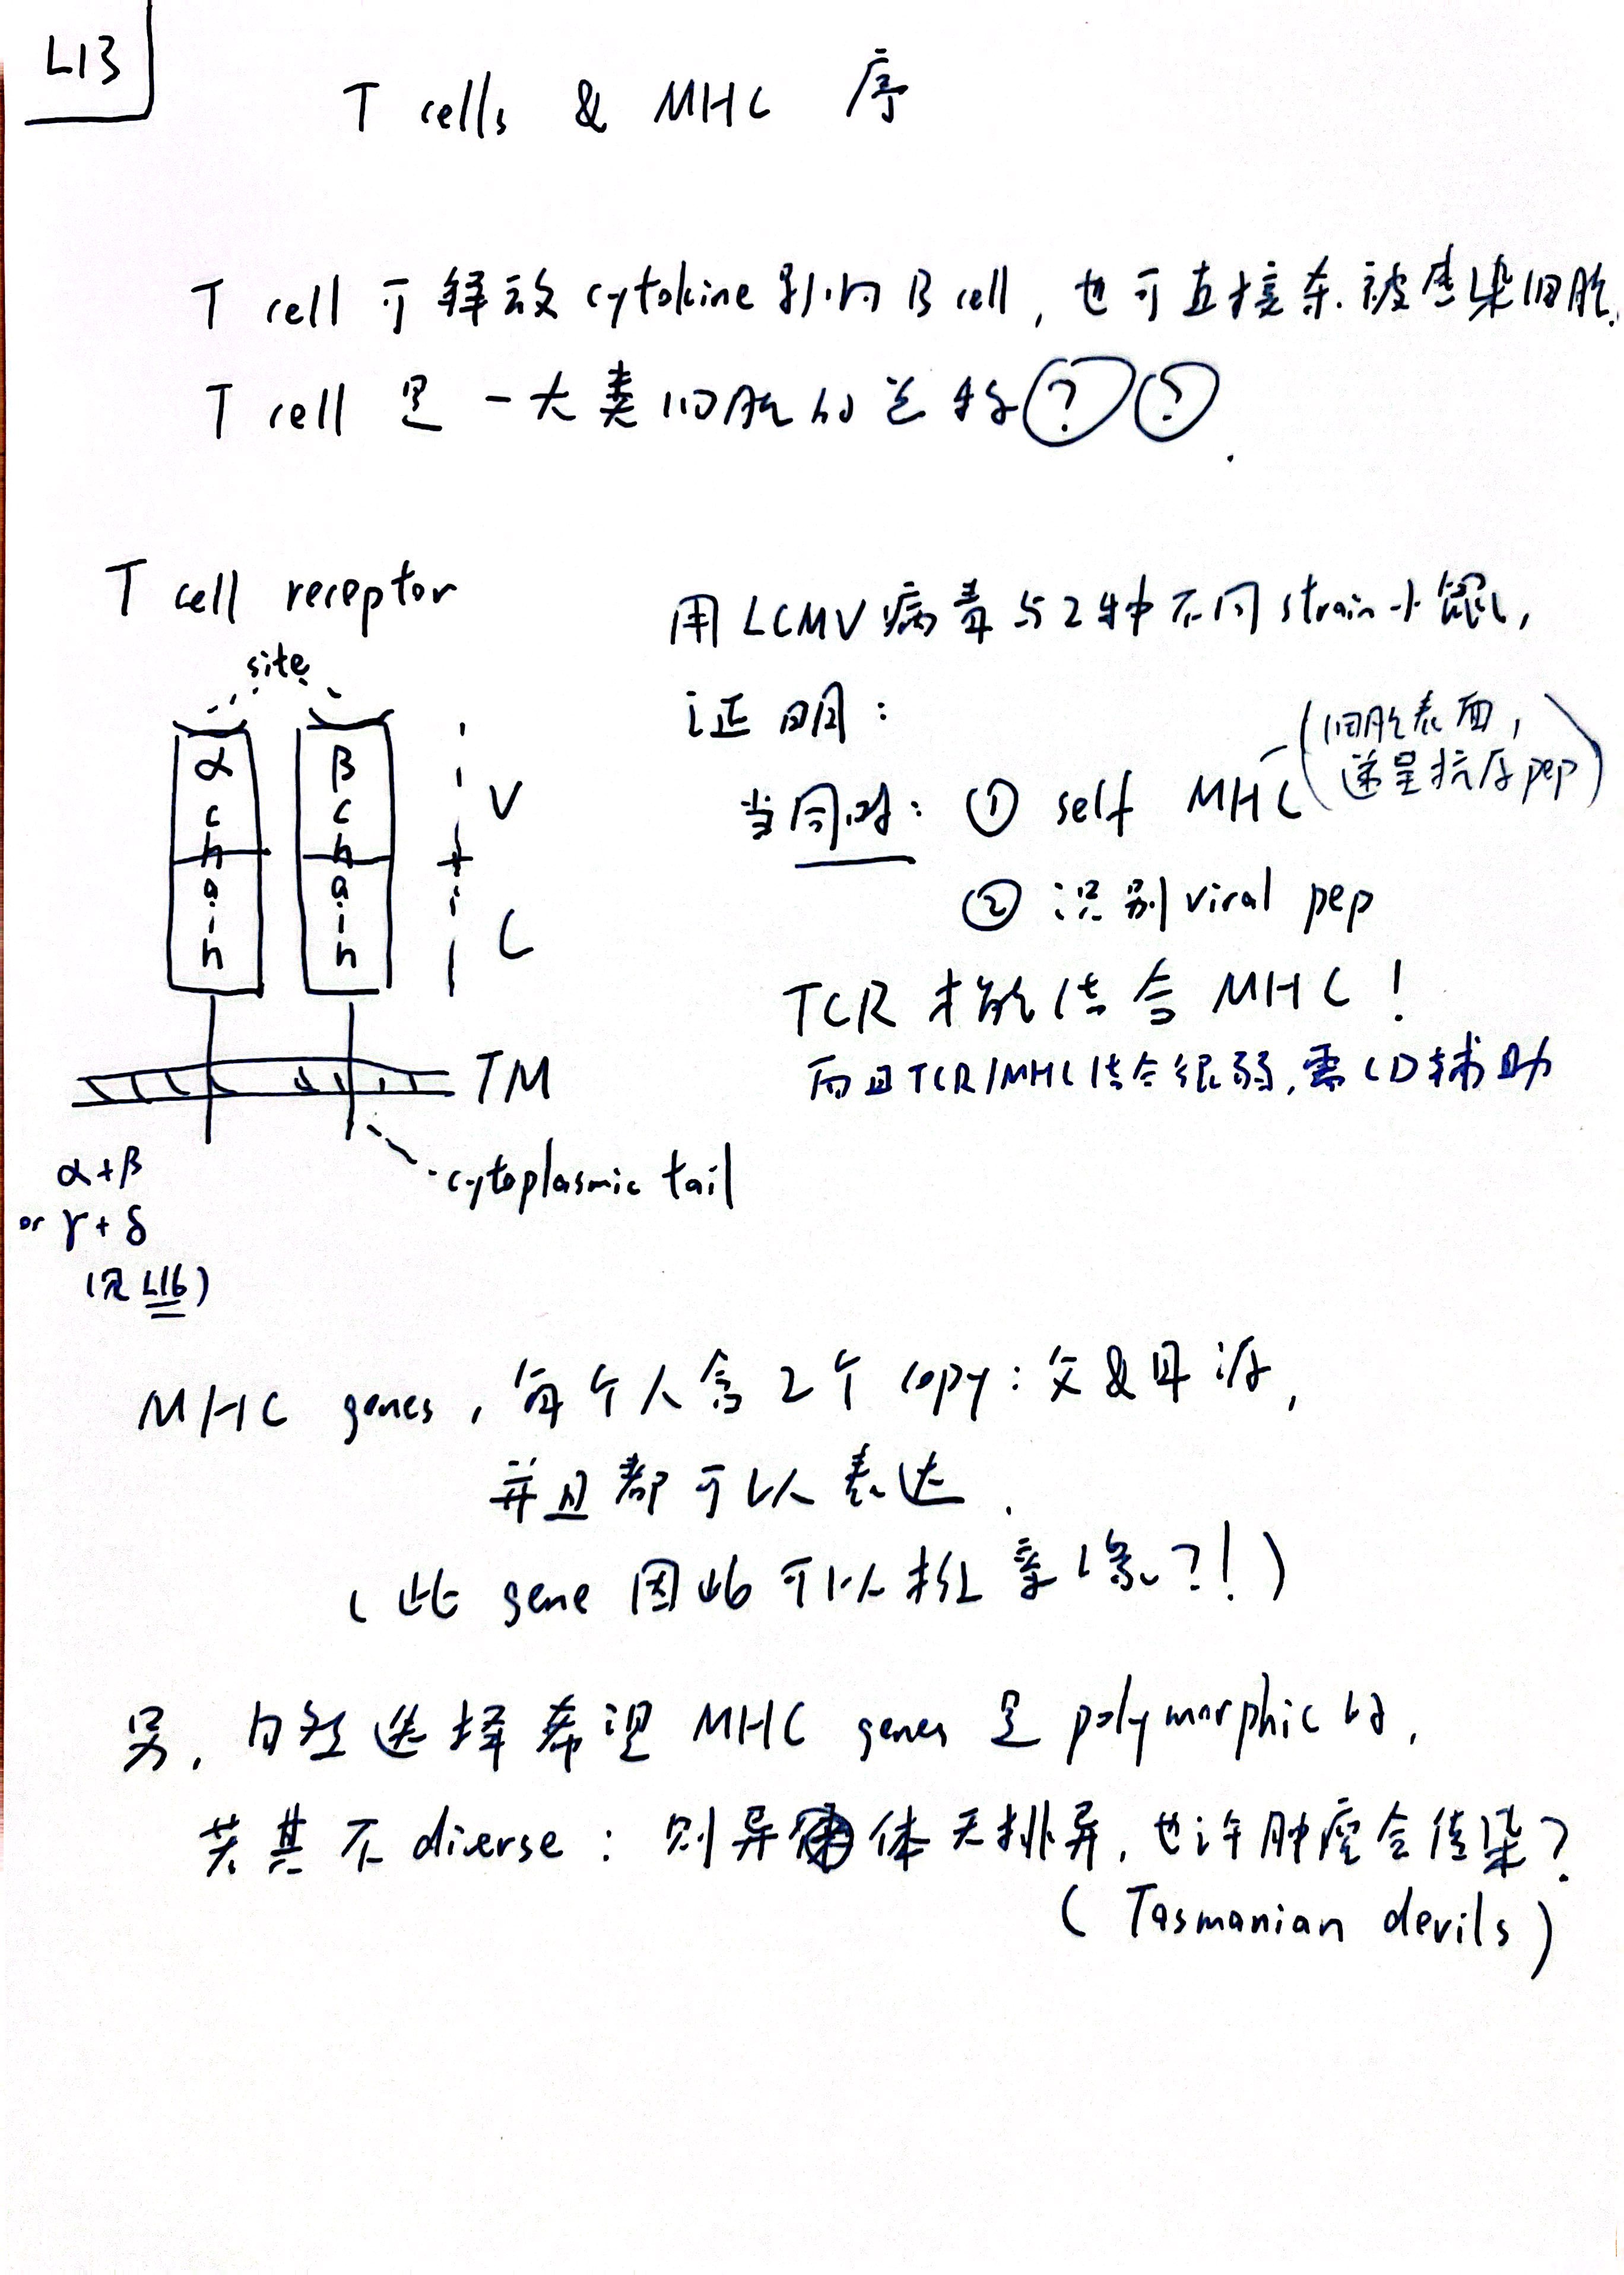 L13
T cells & MHC 序
T cell 可释放 cytokine 影响 B cell, 也可直接杀被感染细胞.
T cell 是一大类细胞的总称 ? ? .
T cell receptor
site
α chain
β chain
V
C
TM
cytoplasmic tail
α+β
or γ+δ
(见 L16)
用 LCMV 病毒与2种不同 strain 小鼠,
证明:
当同时: ① self MHC (细胞表面, 递呈抗原 pep)
② 识别 viral pep
TCR 才能结合 MHC !
而且 TCR/MHC 结合很弱, 需 CD 辅助
MHC genes, 每个人含 2 个 copy: 父 & 母源,
并且都可以表达.
(此 gene 因此可以找亲缘?!)
另, 自然选择希望 MHC genes 是 polymorphic 的,
若其不 diverse: 则异体无排异, 也许肿瘤会传染?
(Tasmanian devils)